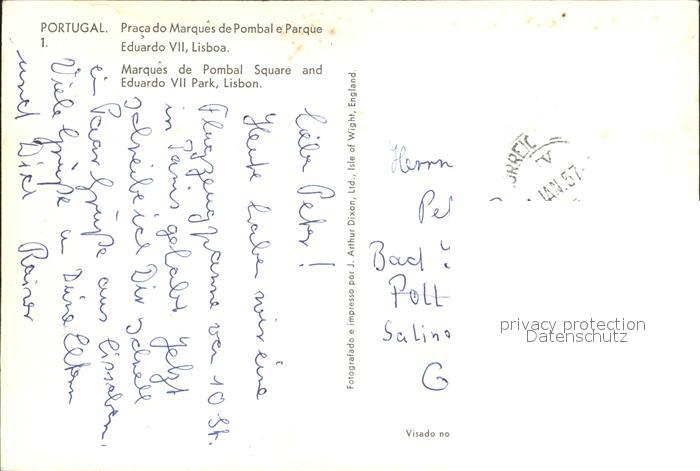 PORTUGAL. Praça do Marquês de Pombal e Parque
1. Eduardo VII, Lisboa.
Marquês de Pombal Square and
Eduardo VII Park, Lisbon.
Liebe Peter!
Heute haben wir eine
Flugzeugpanne von 10 St.
in Paris gehabt. Jetzt
schreibe ich Dir schnell
ein Paar Grüße aus Lissabon.
Viele Grüße an Deine Eltern
und Dich Rainer
Fotografado e impresso por J. Arthur Dixon, Ltd., Isle of Wight, England.
ORREIC
V
JAN.57
Herrn
Pet
Bad
Pott
Saline
G
privacy protection
Datenschutz
Visado no